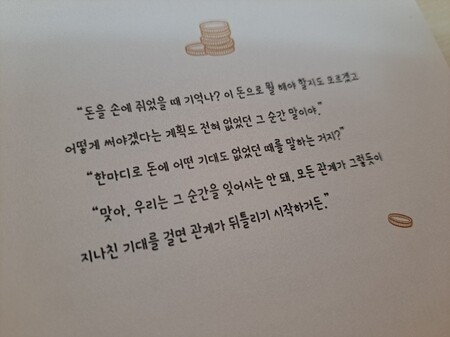 “돈을 손에 쥐었을 때 기억나? 이 돈으로 뭘 해야 할지도 모르겠고
어떻게 써야겠다는 계획도 전혀 없었던 그 순간 말이야.”
“한마디로 돈에 어떤 기대도 없었던 때를 말하는 거지?”
“맞아. 우리는 그 순간을 잊어서는 안 돼. 모든 관계가 그렇듯이
지나친 기대를 걸면 관계가 뒤틀리기 시작하거든.”